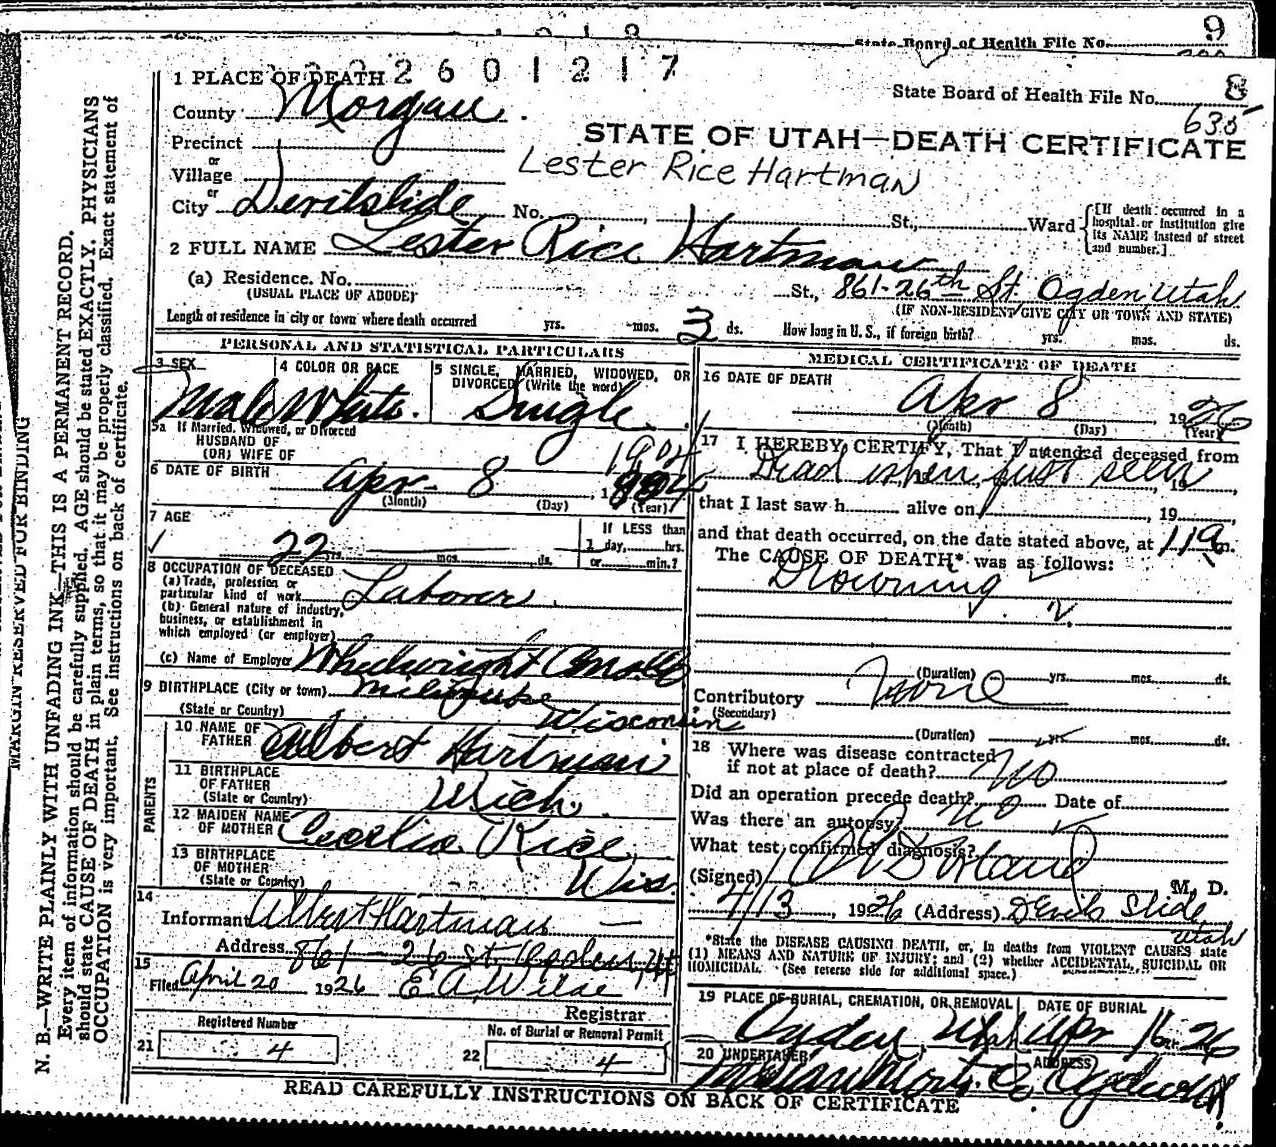 9
State Board of Health File No.
2 6 0 1 2 1 7
1 PLACE OF DEATH
State Board of Health File No. 8
635
County Morgan
STATE OF UTAH—DEATH CERTIFICATE
Precinct
Lester Rice Hartman
or
Village
or
City Devilslide No. St., Ward
[If death occurred in a hospital or institution give its NAME instead of street and number.]
2 FULL NAME Lester Rice Hartman
(a) Residence. No. St., 861-26th St. Ogden Utah
(USUAL PLACE OF ABODE) (IF NON-RESIDENT GIVE CITY OR TOWN AND STATE)
Length of residence in city or town where death occurred yrs. mos. 3 ds. How long in U. S., if foreign birth? yrs. mos. ds.
PERSONAL AND STATISTICAL PARTICULARS
3 SEX
Male
4 COLOR OR RACE
White
5 SINGLE, MARRIED, WIDOWED, OR DIVORCED (Write the word)
Single
5a If Married, Widowed, or Divorced
HUSBAND OF
(OR) WIFE OF
1904
6 DATE OF BIRTH Apr 8
(Month) (Day) (Year)
7 AGE
22 yrs. mos. ds.
If LESS than
1 day, hrs.
or min.?
8 OCCUPATION OF DECEASED
(a) Trade, profession or
particular kind of work Laborer
(b) General nature of industry,
business, or establishment in
which employed (or employer)
(c) Name of Employer Wheelwright
9 BIRTHPLACE (City or town) Milwaukee
(State or Country) Wisconsin
PARENTS
10 NAME OF
FATHER Albert Hartman
11 BIRTHPLACE
OF FATHER
(State or Country) Mich.
12 MAIDEN NAME
OF MOTHER Cecelia Rice
13 BIRTHPLACE
OF MOTHER
(State or Country) Wis.
14
Informant Albert Hartman
Address 861-26 St. Ogden, Ut
15
Filed April 20 1926 E A Wilde
Registrar
Registered Number
21 4
No. of Burial or Removal Permit
22 4
MEDICAL CERTIFICATE OF DEATH
16 DATE OF DEATH
Apr 8 1926
(Month) (Day) (Year)
17 I HEREBY CERTIFY, That I attended deceased from
Dead when first seen, 19
that I last saw h alive on , 19
and that death occurred, on the date stated above, at m.
The CAUSE OF DEATH* was as follows:
Drowning
(Duration) yrs. mos. ds.
Contributory None
(Secondary)
(Duration) yrs. mos. ds.
18 Where was disease contracted
if not at place of death? No
Did an operation precede death? no Date of
Was there an autopsy? no
What test confirmed diagnosis?
(Signed) M. D.
4/13, 1926 (Address) Devils Slide
Utah
*State the DISEASE CAUSING DEATH, or, in deaths from VIOLENT CAUSES state
(1) MEANS AND NATURE OF INJURY; and (2) whether ACCIDENTAL, SUICIDAL OR
HOMICIDAL. (See reverse side for additional space.)
19 PLACE OF BURIAL, CREMATION, OR REMOVAL DATE OF BURIAL
Ogden, Utah Apr 16 1926
20 UNDERTAKER ADDRESS
Ogden
READ CAREFULLY INSTRUCTIONS ON BACK OF CERTIFICATE
MARGIN RESERVED FOR BINDING
N. B.—WRITE PLAINLY WITH UNFADING INK—THIS IS A PERMANENT RECORD.
Every item of information should be carefully supplied. AGE should be stated EXACTLY. PHYSICIANS
should state CAUSE OF DEATH in plain terms, so that it may be properly classified. Exact statement of
OCCUPATION is very important. See instructions on back of certificate.